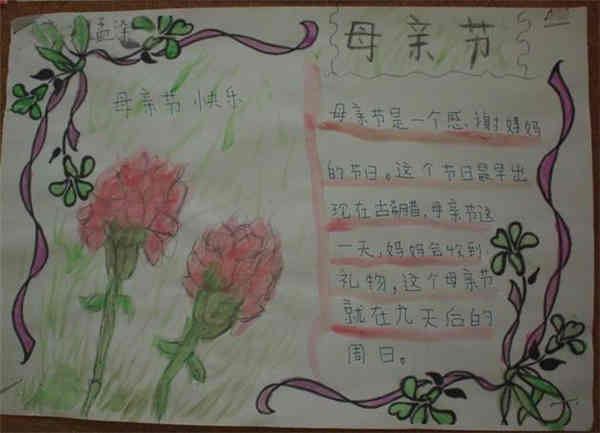 母亲节
母亲节快乐
母亲节是一个感谢妈妈
的节日。这个节日最早出
现在古希腊，母亲节这
一天，妈妈会收到
礼物，这个母亲节
就在九天后的
周日。